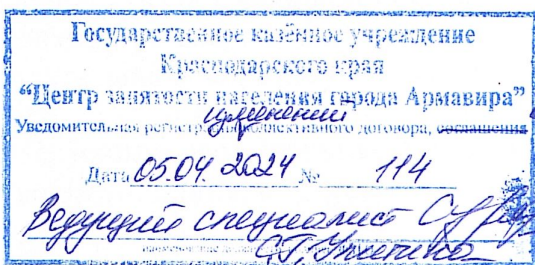 Государственное казённое учреждение
Краснодарского края
“Центр занятости населения города Армавира”
изменений
Уведомительная регистрация коллективного договора, соглашения
Дата 05.04 2024 № 114
Ведущий специалист
С.Г.